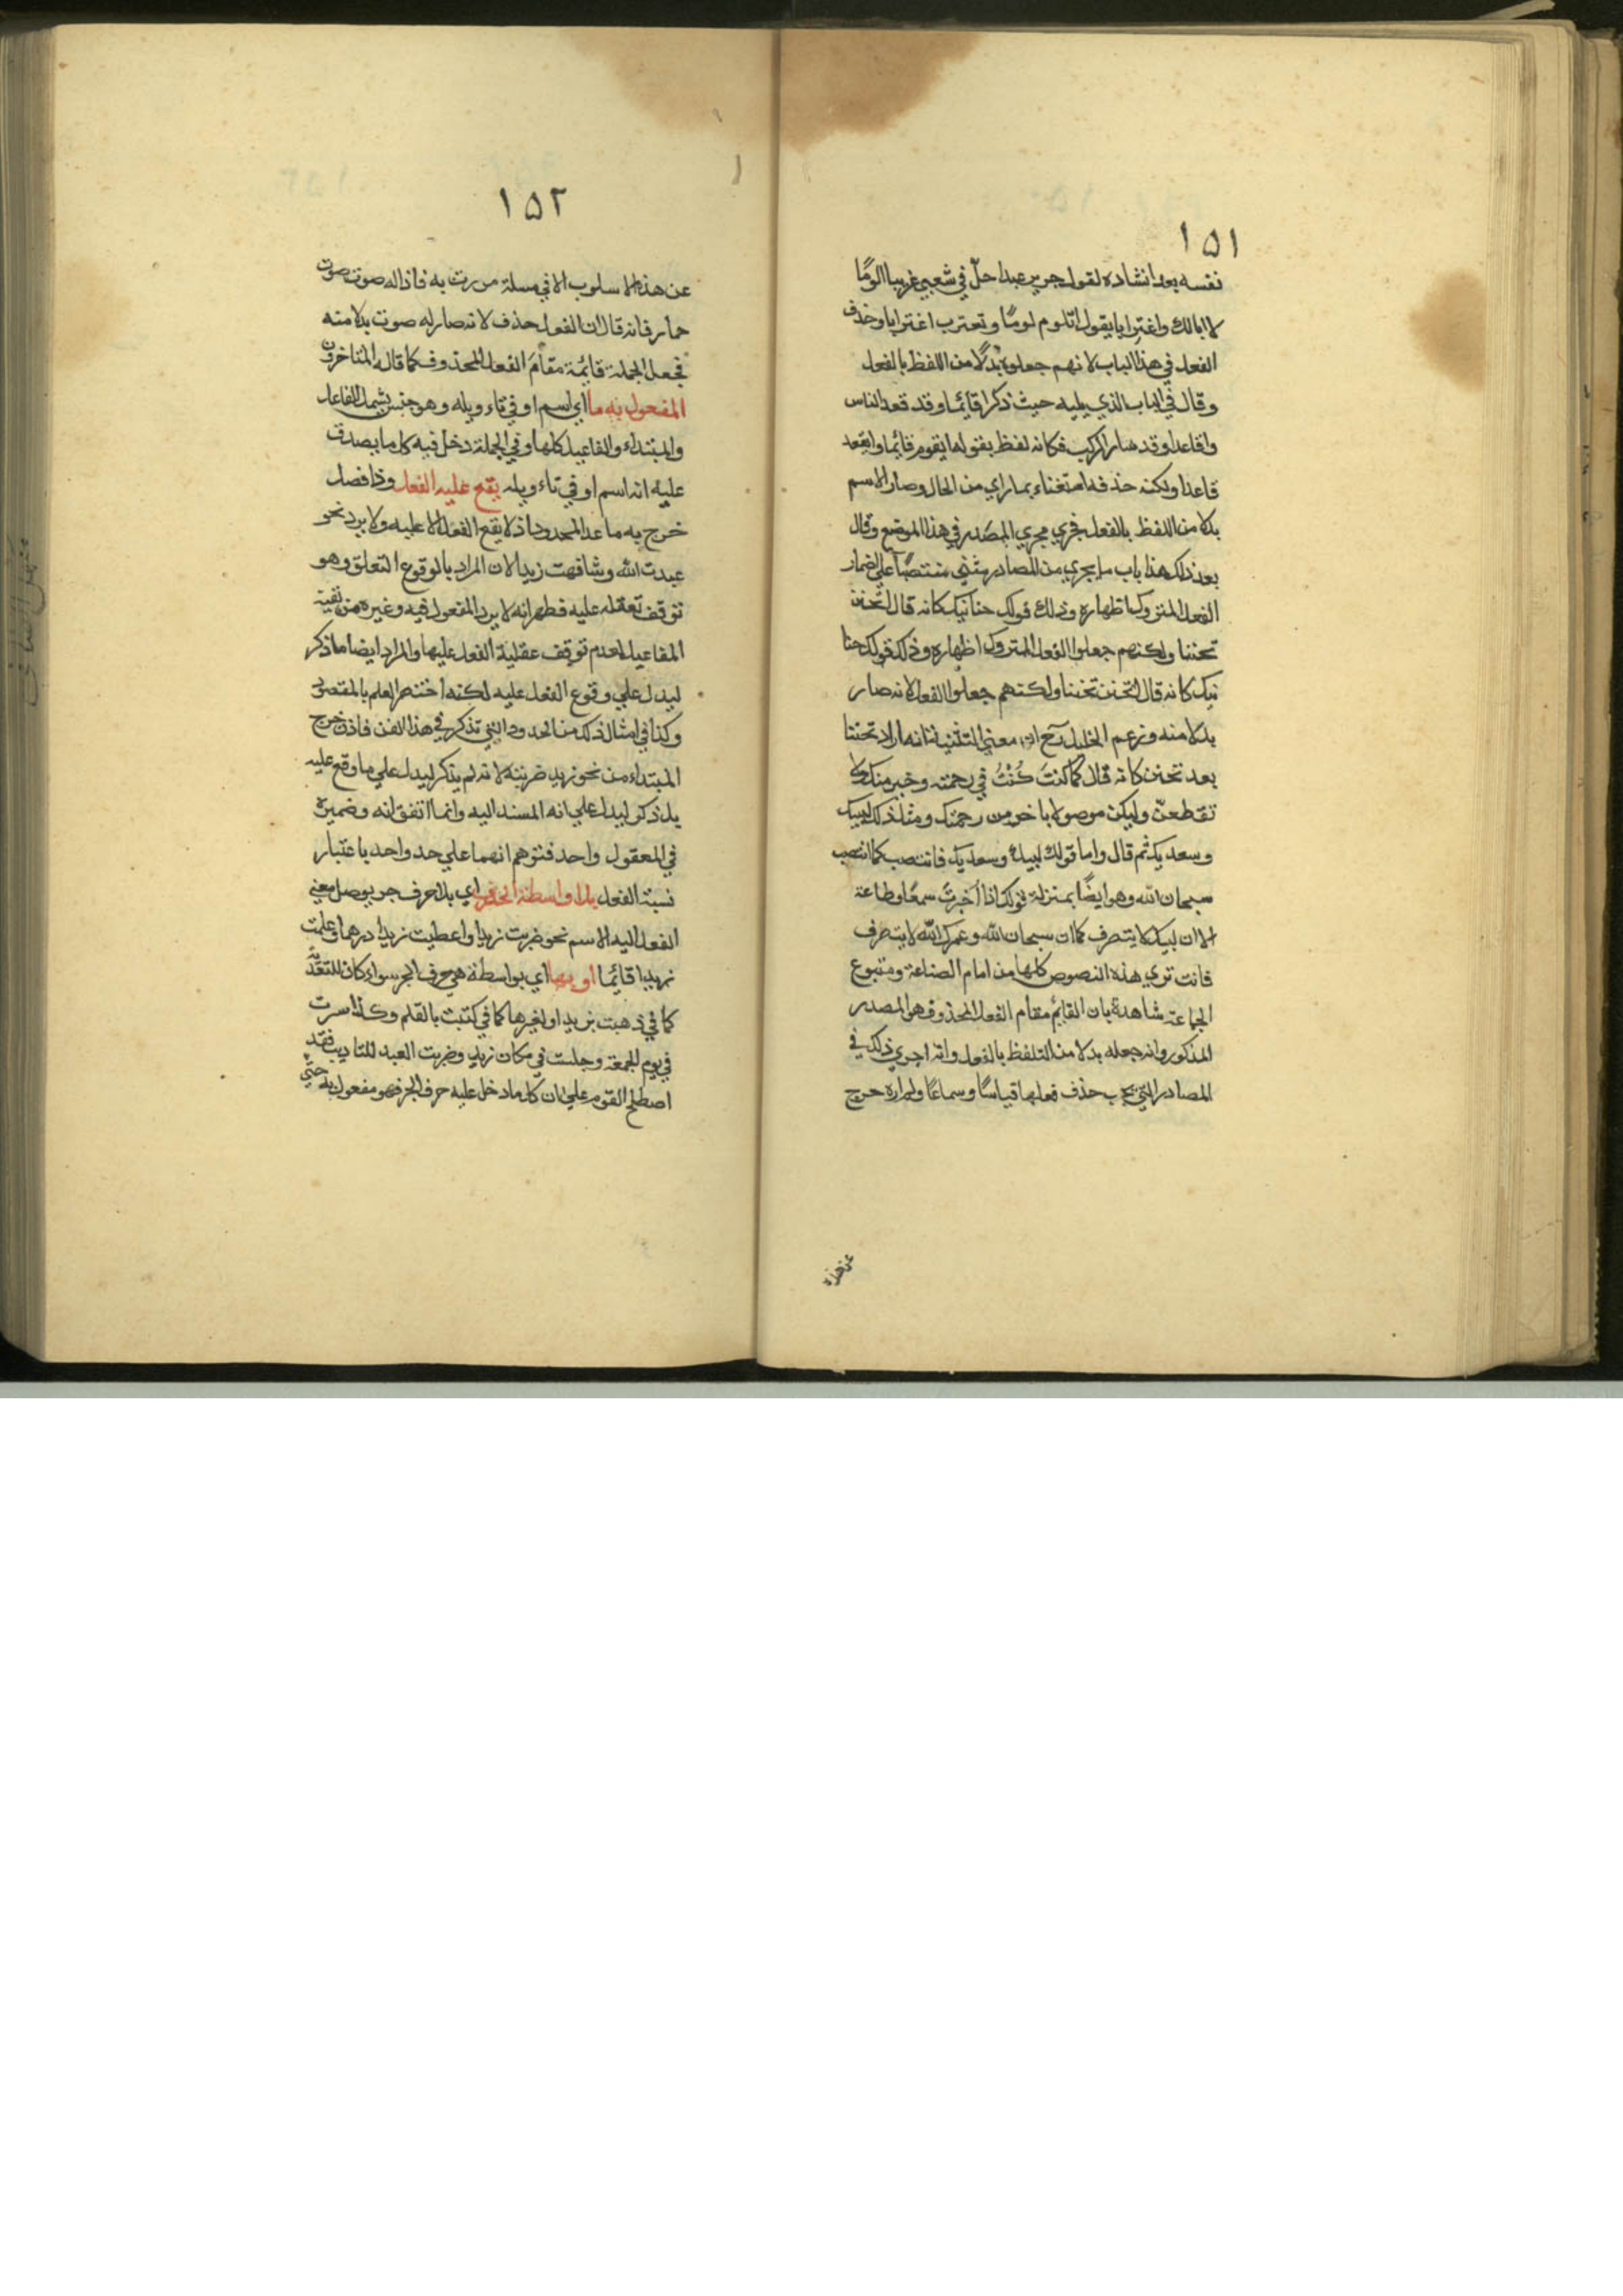 ١٥١
نفسه بعد انشاده لقول جرير عبدا حلّ في شعبي غريبا الومًا
لا ابالك واغترابا يقول اتلوم لومًا وتغترب اغترابا وحذف
الفعل في هذا الباب لانهم جعلوه بدلًا من اللفظ بالفعل
وقال في الباب الذي يليه حيث ذكر اقائما وقد قعد الناس
واقاعدا وقد سار الركب فكانه لفظ بقوله اتقوم قائما واتقعد
قاعدا ولكنه حذفه استغناء بما راي من الحال وصار الاسم
بدلا من اللفظ بالفعل فجري مجري المصدر في هذا الموضع وقال
بعد ذلك هذا باب ما يجري من المصادر مثني منتصبًا علي اضمار
الفعل المتروك اظهاره وذلك قولك حنانيك كانه قال تحنن
تحننا ولكنهم جعلوا الفعل المتروك اظهاره وذلك قولك حنا
نيك كانه قال تحنن تحننا ولكنهم جعلوا الفعل لانه صار
بدلا منه وزعم الخليل رح ان معني التثنية انه اراد تحننا
بعد تحنن كانه قال كما كنتَ كُنْتُ في رحمته وخير منك ولا
تقطعنّ وليكن موصولا باخر من رحمتك ومثل ذلك لبيك
وسعديك ثم قال واما قولك لبيك وسعديك فانتصب كما انتصب
سبحان الله وهو ايضًا بمنزلة قولك اذا اخبرتَ سمعًا وطاعة
الا ان لبيك لا يتصرف كما ان سبحان الله وعمرك الله لا يتصرف
فانت تري هذه النصوص كلها من امام الصناعة ومتبوع
الجماعة شاهدة بان القائم مقام الفعل المحذوف هو المصدر
المذكور وانه جعله بدلا من التلفظ بالفعل وانه اجري ذلك في
المصادر التي يجب حذف فعلها قياسًا وسماعًا ولم اره خرج
عن هذه
١٥٢
عن هذا الاسلوب الا في مسلة مررت به فاذا له صوت صوت
حمار فانه قال ان الفعل حذف لانه صار له صوت بدلا منه
فجعل الجملة قائمة مقامَ الفعل المحذوف كما قال المتاخرون
المفعول به ما اي اسم او في تاءويله وهو جنس يشمل الفاعل
والمبتداء والمفاعيل كلها وفي الجملة دخل فيه كل ما يصدق
عليه انه اسم او في تاءويله يقع عليه الفعل وذا فصل
خرج به ما عدا المحدود اذ لا يقع الفعل الا عليه ولا يرد نحو
عبدت الله وشافهت زيدا لان المراد بالوقوع التعلق وهو
توقف تعقله عليه فظهر انه لا يرد المفعول فيه وغيره من بقية
المفاعيل لعدم توقف عقلية الفعل عليها والمراد ايضا ما ذكر
ليدل علي وقوع الفعل عليه لكنه اختصر العلم بالمقصود
وكذا في امثال ذلك من الحدود التي تذكر في هذا الفن فاذن خرج
المبتداء من نحو زيد ضربته لانه لم يذكر ليدل علي ما وقع عليه
بل ذكر ليدل علي انه المسند اليه وانما اتفق انه وضميره
في المعقول واحد فتوهم انهما علي حد واحد باعتبار
نسبة الفعل بلا واسطة الحرف اي بلا حرف جر يوصل معني
الفعل اليه الاسم نحو ضربت زيدا واعطيت زيدا درهما وعلمت
زيدا قائما او بها اي بواسطة هي حرف الجر سواء كان للتعدية
كما في ذهبت بزيد او لغيرها كما في كتبت بالقلم وكذا سرت
في يوم الجمعة وجلست في مكان زيد وضربت العبد للتاديب فقد
اصطلح القوم علي ان كل ما دخل عليه حرف الجر فهو مفعول به حتي